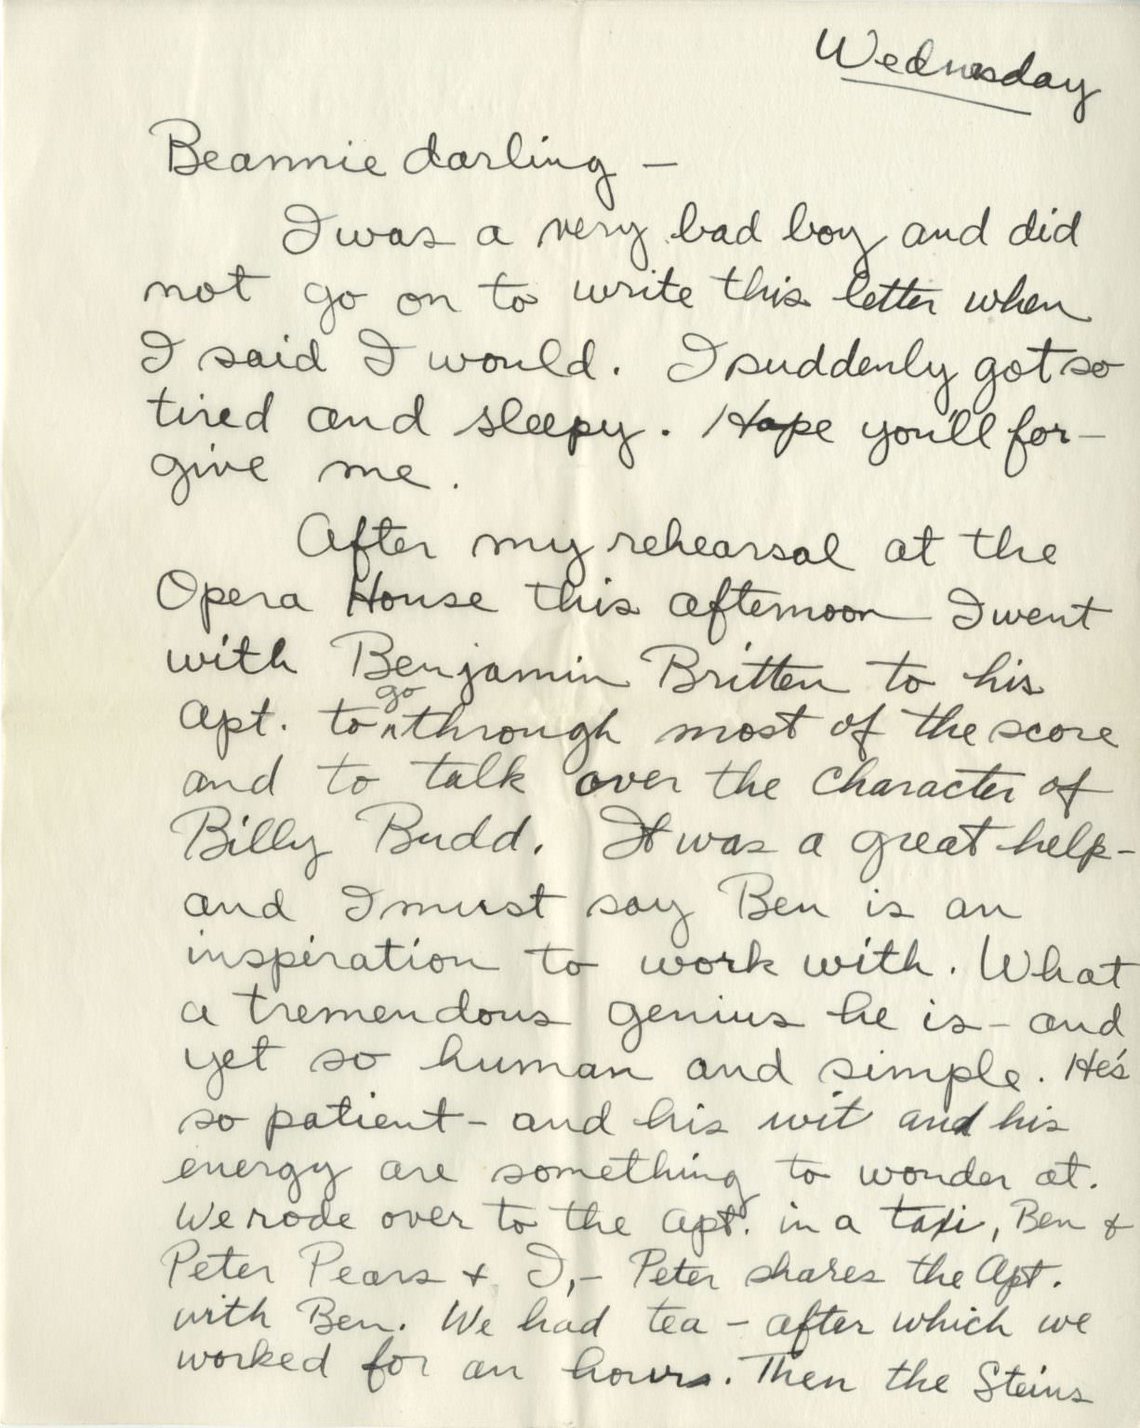 Wednesday
Beannie darling —
I was a very bad boy and did
not go on to write this letter when
I said I would. I suddenly got so
tired and sleepy. Hope you'll for-
give me.
After my rehearsal at the
Opera House this afternoon I went
with Benjamin Britten to his
Apt. to go through most of the score
and to talk over the character of
Billy Budd. It was a great help -
and I must say Ben is an
inspiration to work with. What
a tremendous genius he is - and
yet so human and simple. He's
so patient - and his wit and his
energy are something to wonder at.
We rode over to the apt. in a taxi, Ben &
Peter Pears & I, - Peter shares the Apt.
with Ben. We had tea - after which we
worked for an hour. Then the Steins